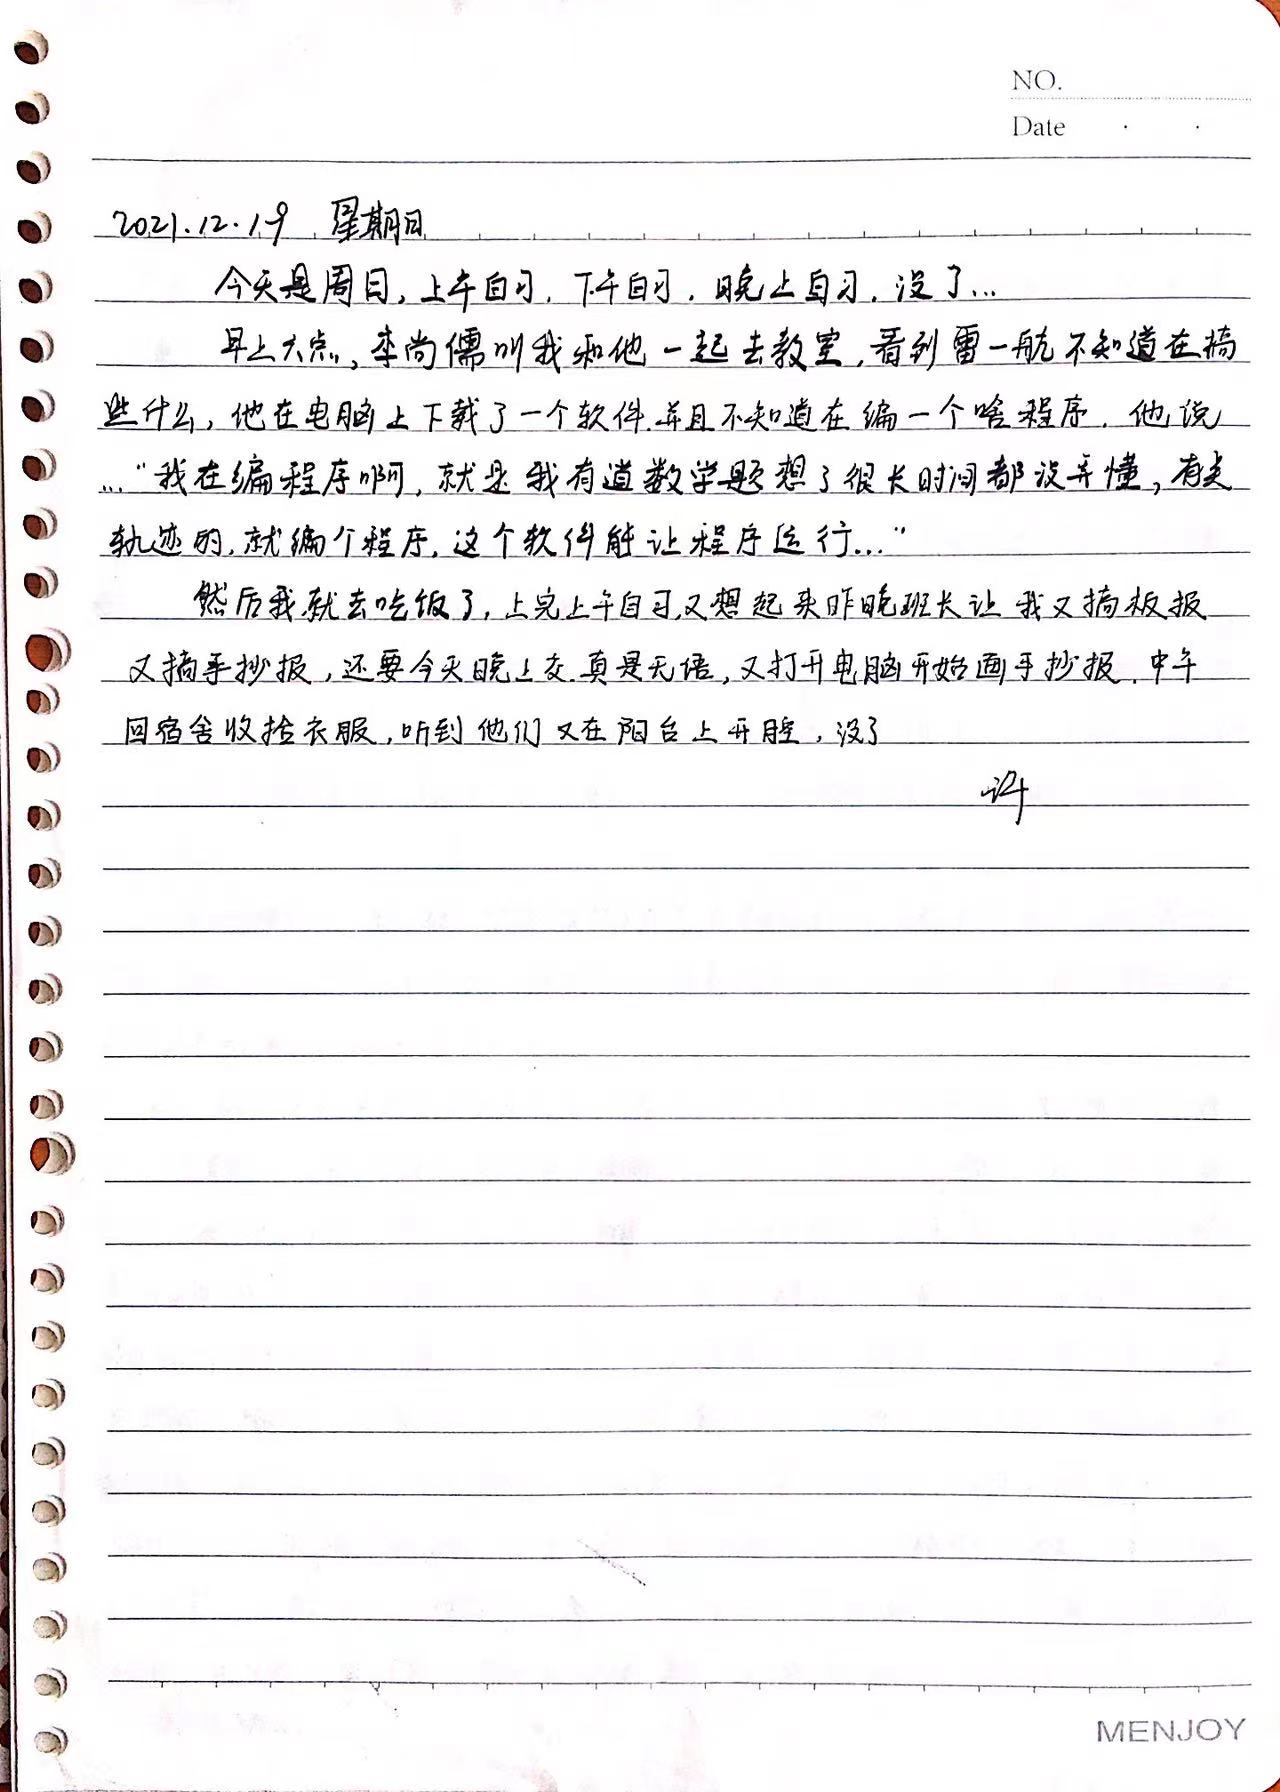 NO.
Date · ·
2021.12.19 星期日
今天是周日，上午自习，下午自习，晚上自习，没了...
早上六点，李尚儒叫我和他一起去教室，看到雷一航不知道在搞
些什么，他在电脑上下载了一个软件.并且不知道在编一个啥程序.他说
..."我在编程序啊，就是我有道数学题想了很长时间都没弄懂，有关
轨迹的，就编个程序，这个软件能让程序运行..."
然后我就去吃饭了，上完上午自习，又想起来昨晚班长让我又搞板报
又搞手抄报，还要今天晚上交.真是无语，又打开电脑开始画手抄报.中午
回宿舍收拾衣服，听到他们又在阳台上开腔，没了
许
MENJOY